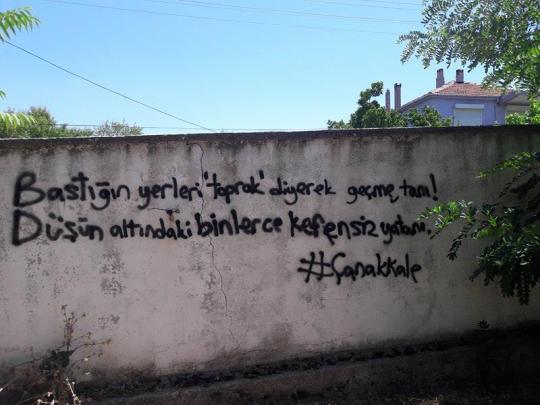 Bastığın yerleri 'toprak' diyerek geçme, tanı!
Düşün altındaki binlerce kefensiz yatanı.
#Çanakkale